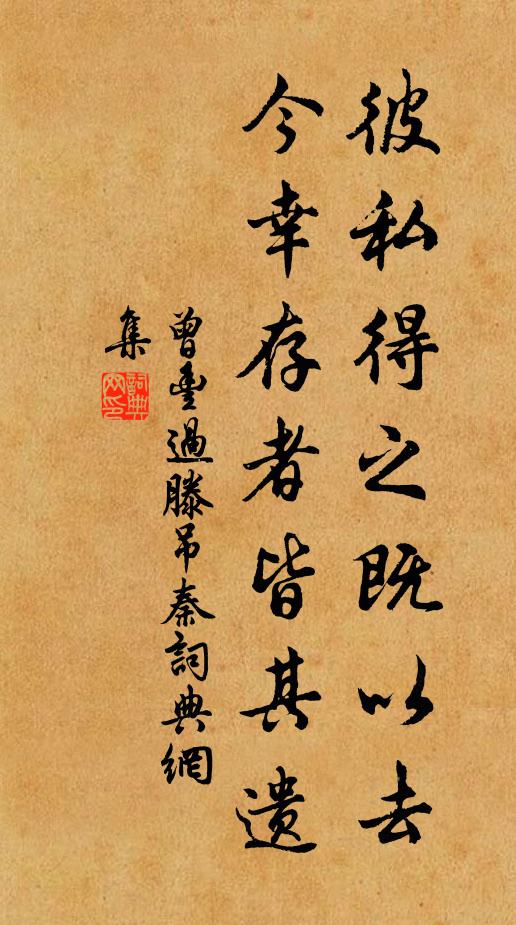 彼私得之既以去
今幸存者皆其遺
曾豐過滕吊秦詞典網
集
詞典
网印